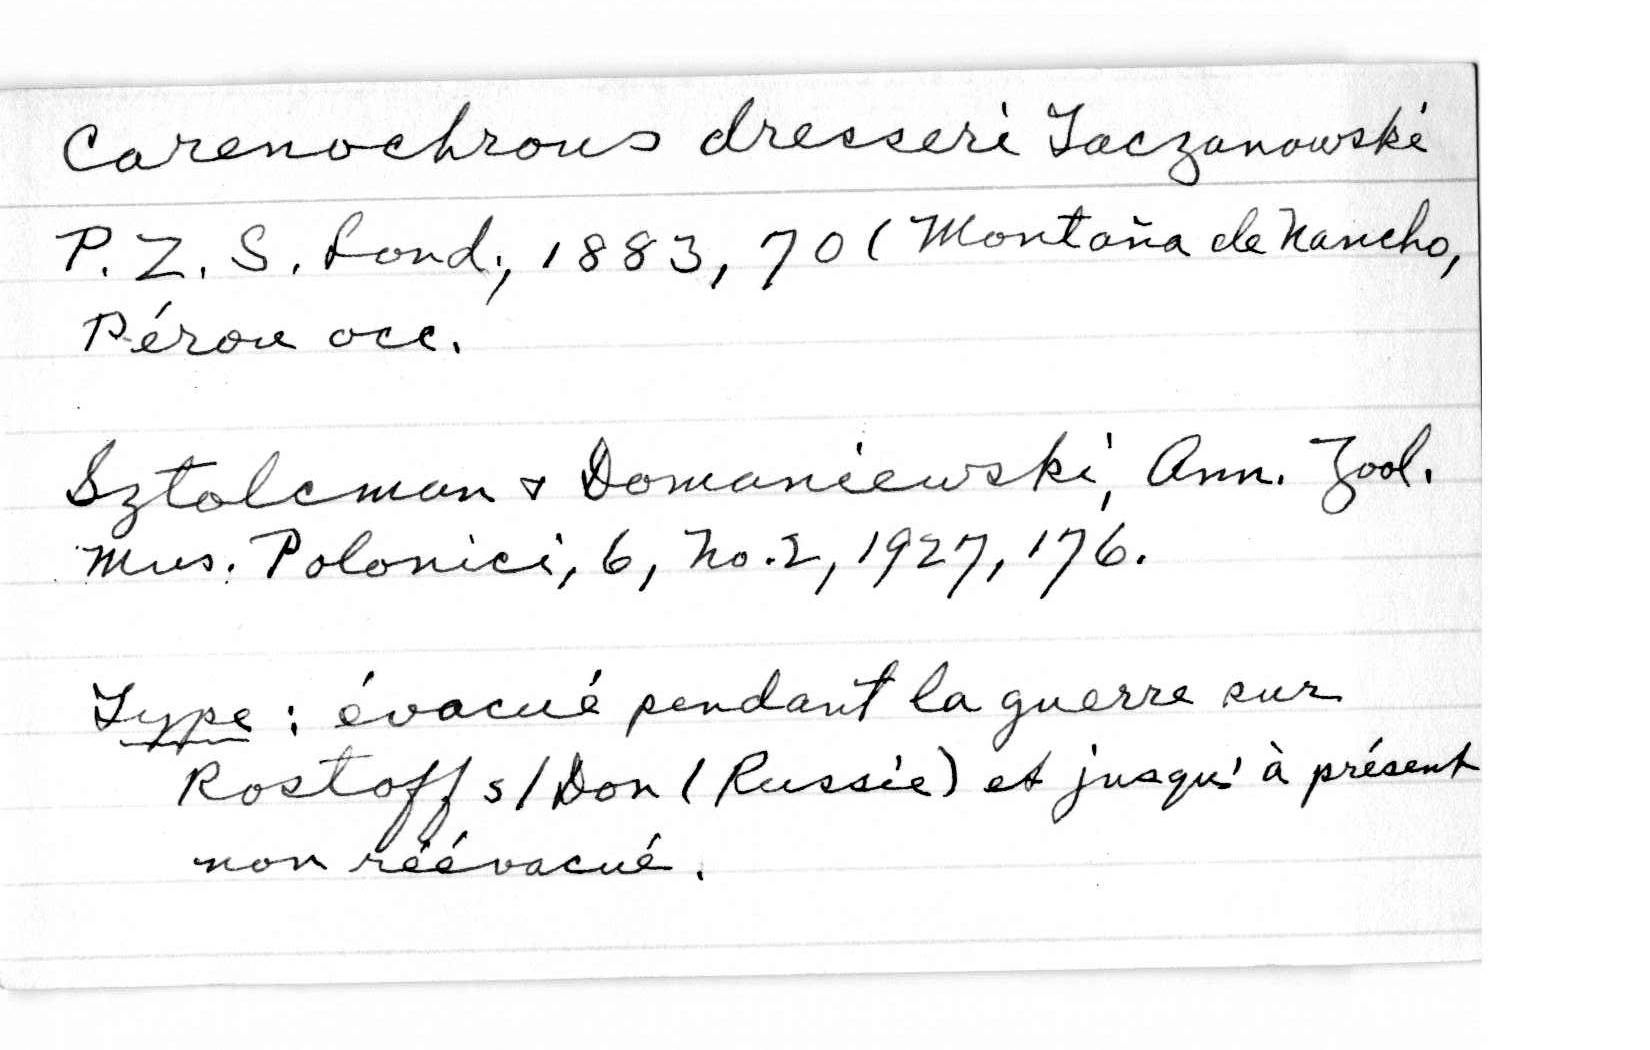 Carenochrous dresseri Taczanowski
P. Z. S. Lond., 1883, 70 (Montaña de Nancho,
Pérou occ.
Sztolcman & Domaniewski, Ann. Zool.
Mus. Polonici, 6, No. 2, 1927, 176.
Type : évacué pendant la guerre sur
Rostoff s/Don (Russie) et jusqu'à présent
non réévacué.